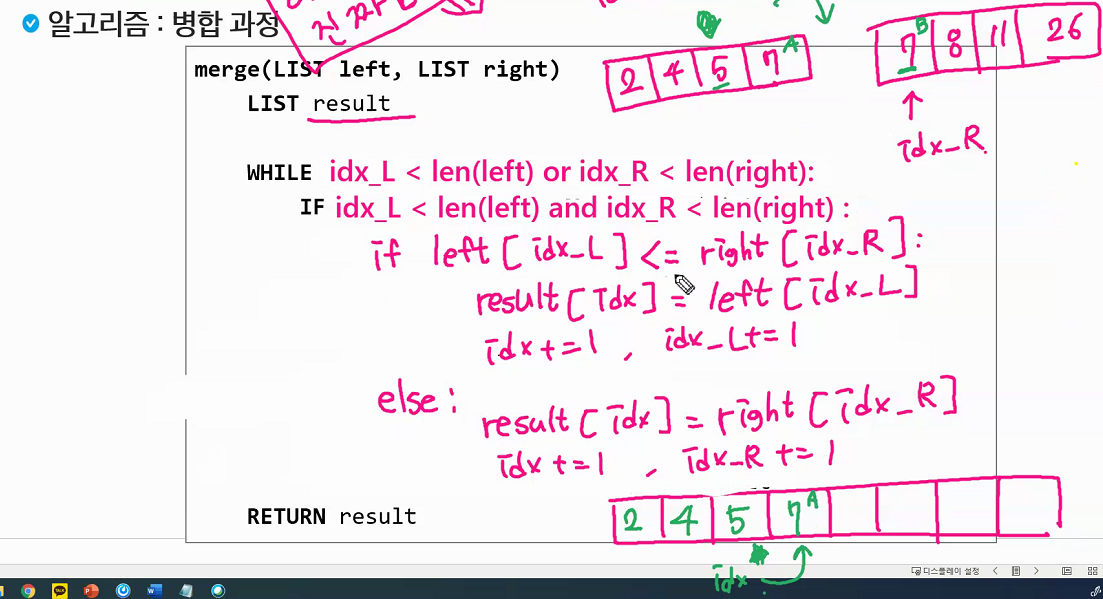 알고리즘 : 병합 과정
merge(LIST left, LIST right)
2 4 5 7A
7B 8 11 26
LIST result
idx_R
WHILE idx_L < len(left) or idx_R < len(right):
IF idx_L < len(left) and idx_R < len(right) :
if left[idx_L] <= right[idx_R]:
result[idx] = left[idx_L]
idx+=1 , idx_L+=1
else:
result[idx] = right[idx_R]
idx+=1 , idx_R+=1
RETURN result
2 4 5 7A
idx
디스플레이 설정